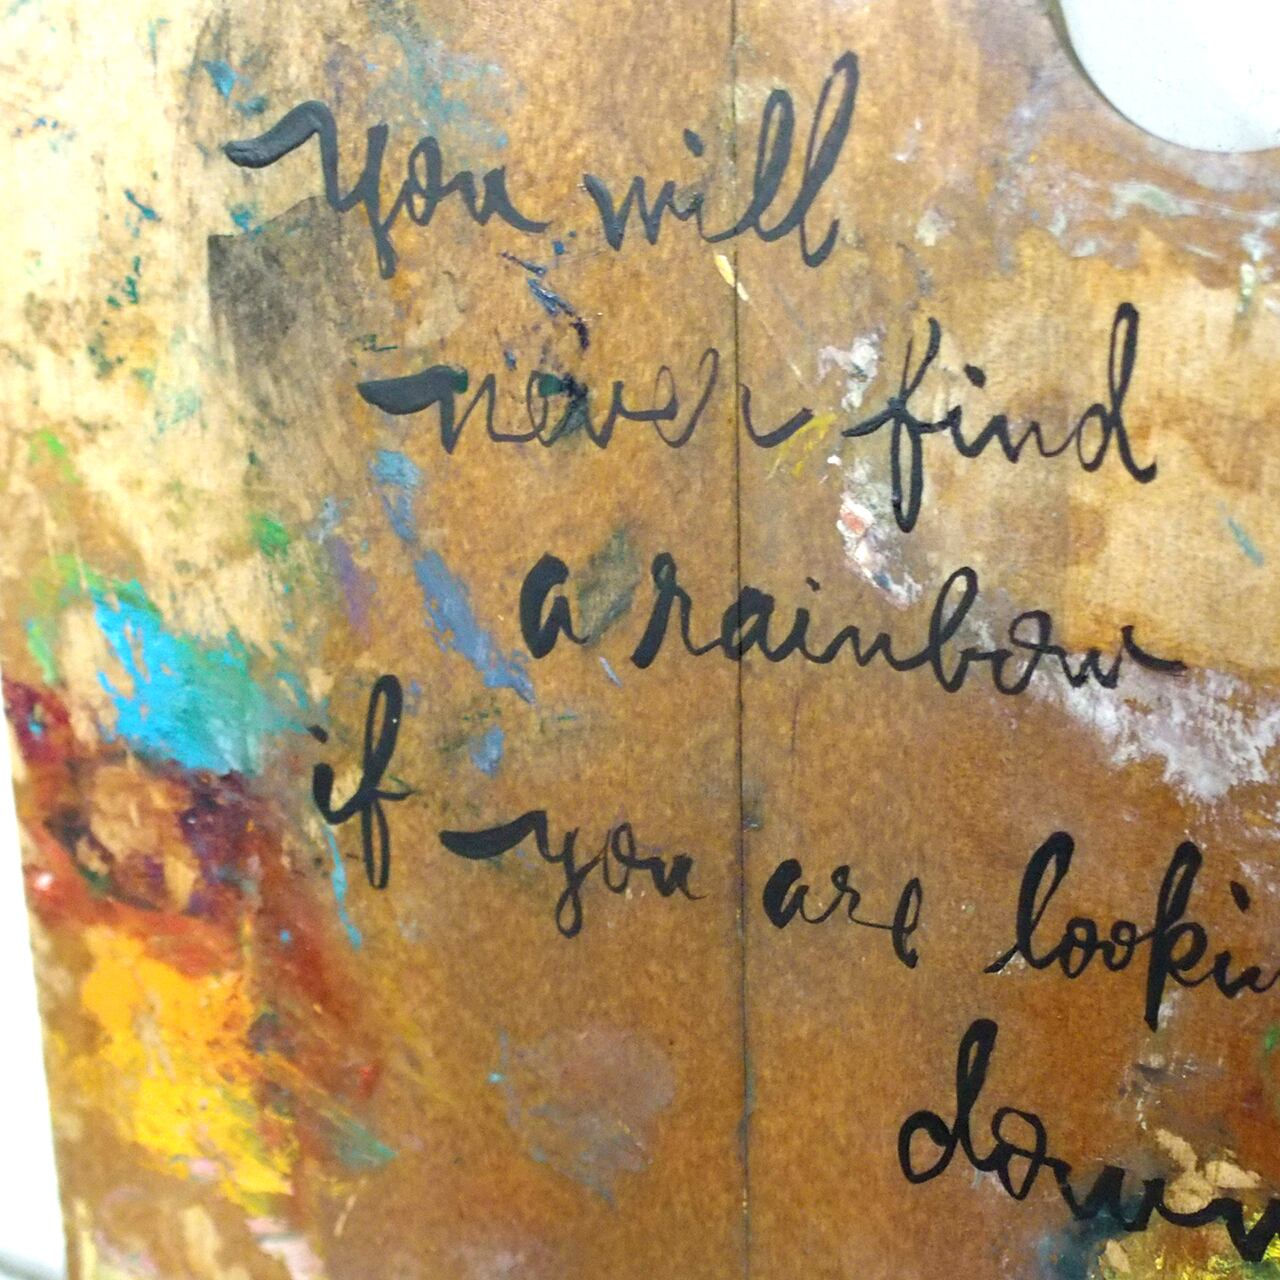 you will
never find
a rainbow
if you are lookin
down